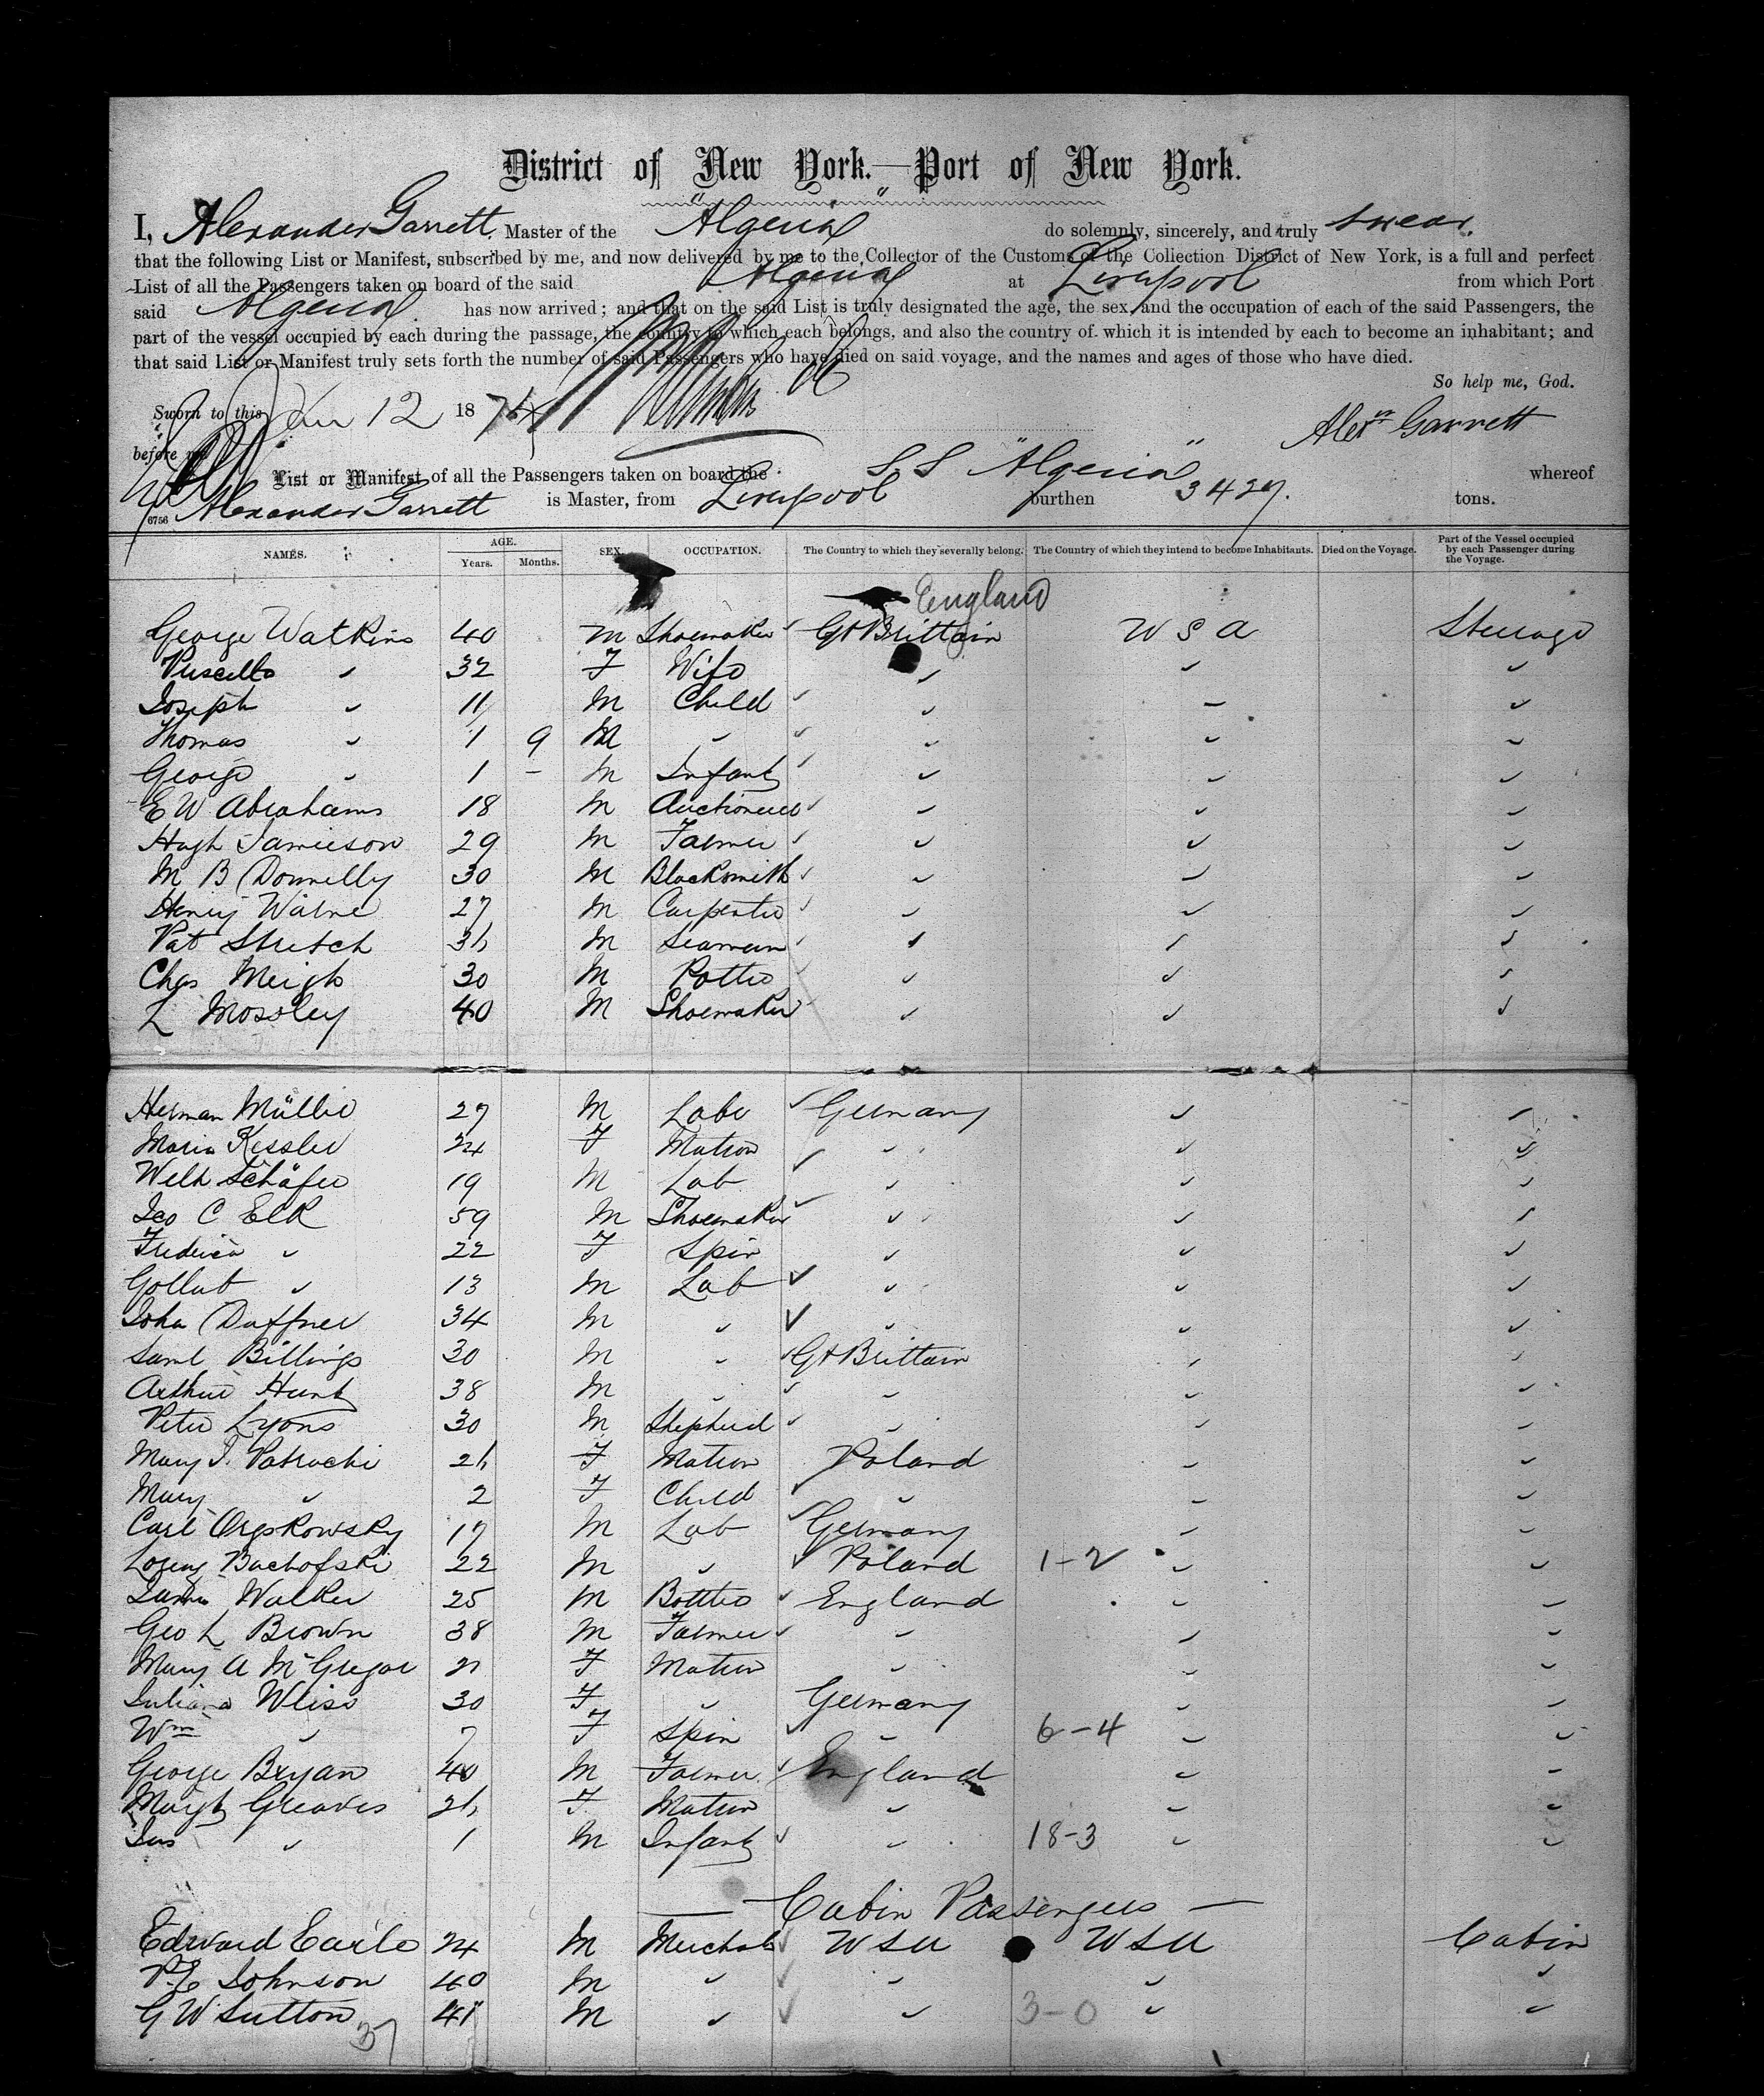 District of New York.—Port of New York.
I, Alexander Garrett, Master of the "Algeria" do solemnly, sincerely, and truly swear.
that the following List or Manifest, subscribed by me, and now delivered by me to the Collector of the Customs of the Collection District of New York, is a full and perfect
List of all the Passengers taken on board of the said Algeria at Liverpool from which Port
said Algeria. has now arrived; and that on the said List is truly designated the age, the sex and the occupation of each of the said Passengers, the
part of the vessel occupied by each during the passage, the country to which each belongs, and also the country of which it is intended by each to become an inhabitant; and
that said List or Manifest truly sets forth the number of said Passengers who have died on said voyage, and the names and ages of those who have died.
So help me, God.
Sworn to this Jan 12 18
Alexr Garrett
before me
List or Manifest of all the Passengers taken on board the SS "Algeria" whereof
6756 Alexander Garrett is Master, from Liverpool burthen 3427. tons.
NAMES. AGE. Years. Months. SEX. OCCUPATION. The Country to which they severally belong. The Country of which they intend to become Inhabitants. Died on the Voyage. Part of the Vessel occupied by each Passenger during the Voyage.
England
George Watkins 40 M Shoemaker Gt Brittain U S A Steerage
Priscilla " 32 F Wife " " "
Joseph " 11 M Child " " "
Thomas " 1 9 M " " " "
George " 1 - M Infant " " "
E W Abrahams 18 M Auctioneer " " "
Hugh Jamieson 29 M Farmer " " "
M B Donnelly 30 M Blacksmith " " "
Henry Warne 27 M Carpenter " " "
Pat Stretch M Seaman " " "
Chas Meigh 30 M Potter " " "
L Mossley 40 M Shoemaker " " "
Herman Müller 27 M Labr Germany " "
Maria Kessler 24 F Matron " " "
Welh Schäfer 19 M Lab " " "
Geo C Elk 59 M Shoemaker " " "
Frederica " 22 F Spin " " "
Gollub " 13 M Lab " " "
John Daffner 34 M " " " "
Saml Billings 30 M " Gt Brittain " "
Arthur Hunt 38 M " " " "
Peter Lyons 30 M Shepherd " " "
Mary F Matron Poland " "
Mary " 2 F Child " " "
Carl Orgskowsky 17 M Lab Germany " "
Bachofski 22 M " Poland 1-2 " "
James Walker 25 M England " "
Geo L Brown 38 M Farmer " " "
Mary A McGregor 21 F Matron " " "
Juliana Weiss 30 F " Germany " "
Wm " 7 F Spin " 6-4 " "
George Bryan 40 M Farmer England " "
Margt Greaves F Matron " " "
Jas " 1 M Infant " 18-3 " "
— Cabin Passengers —
Edward Earle 24 M Merchat U S A U S A Cabin
P E Johnson 40 M " " " "
G W Sutton 41 M " " 3-0 " "
37